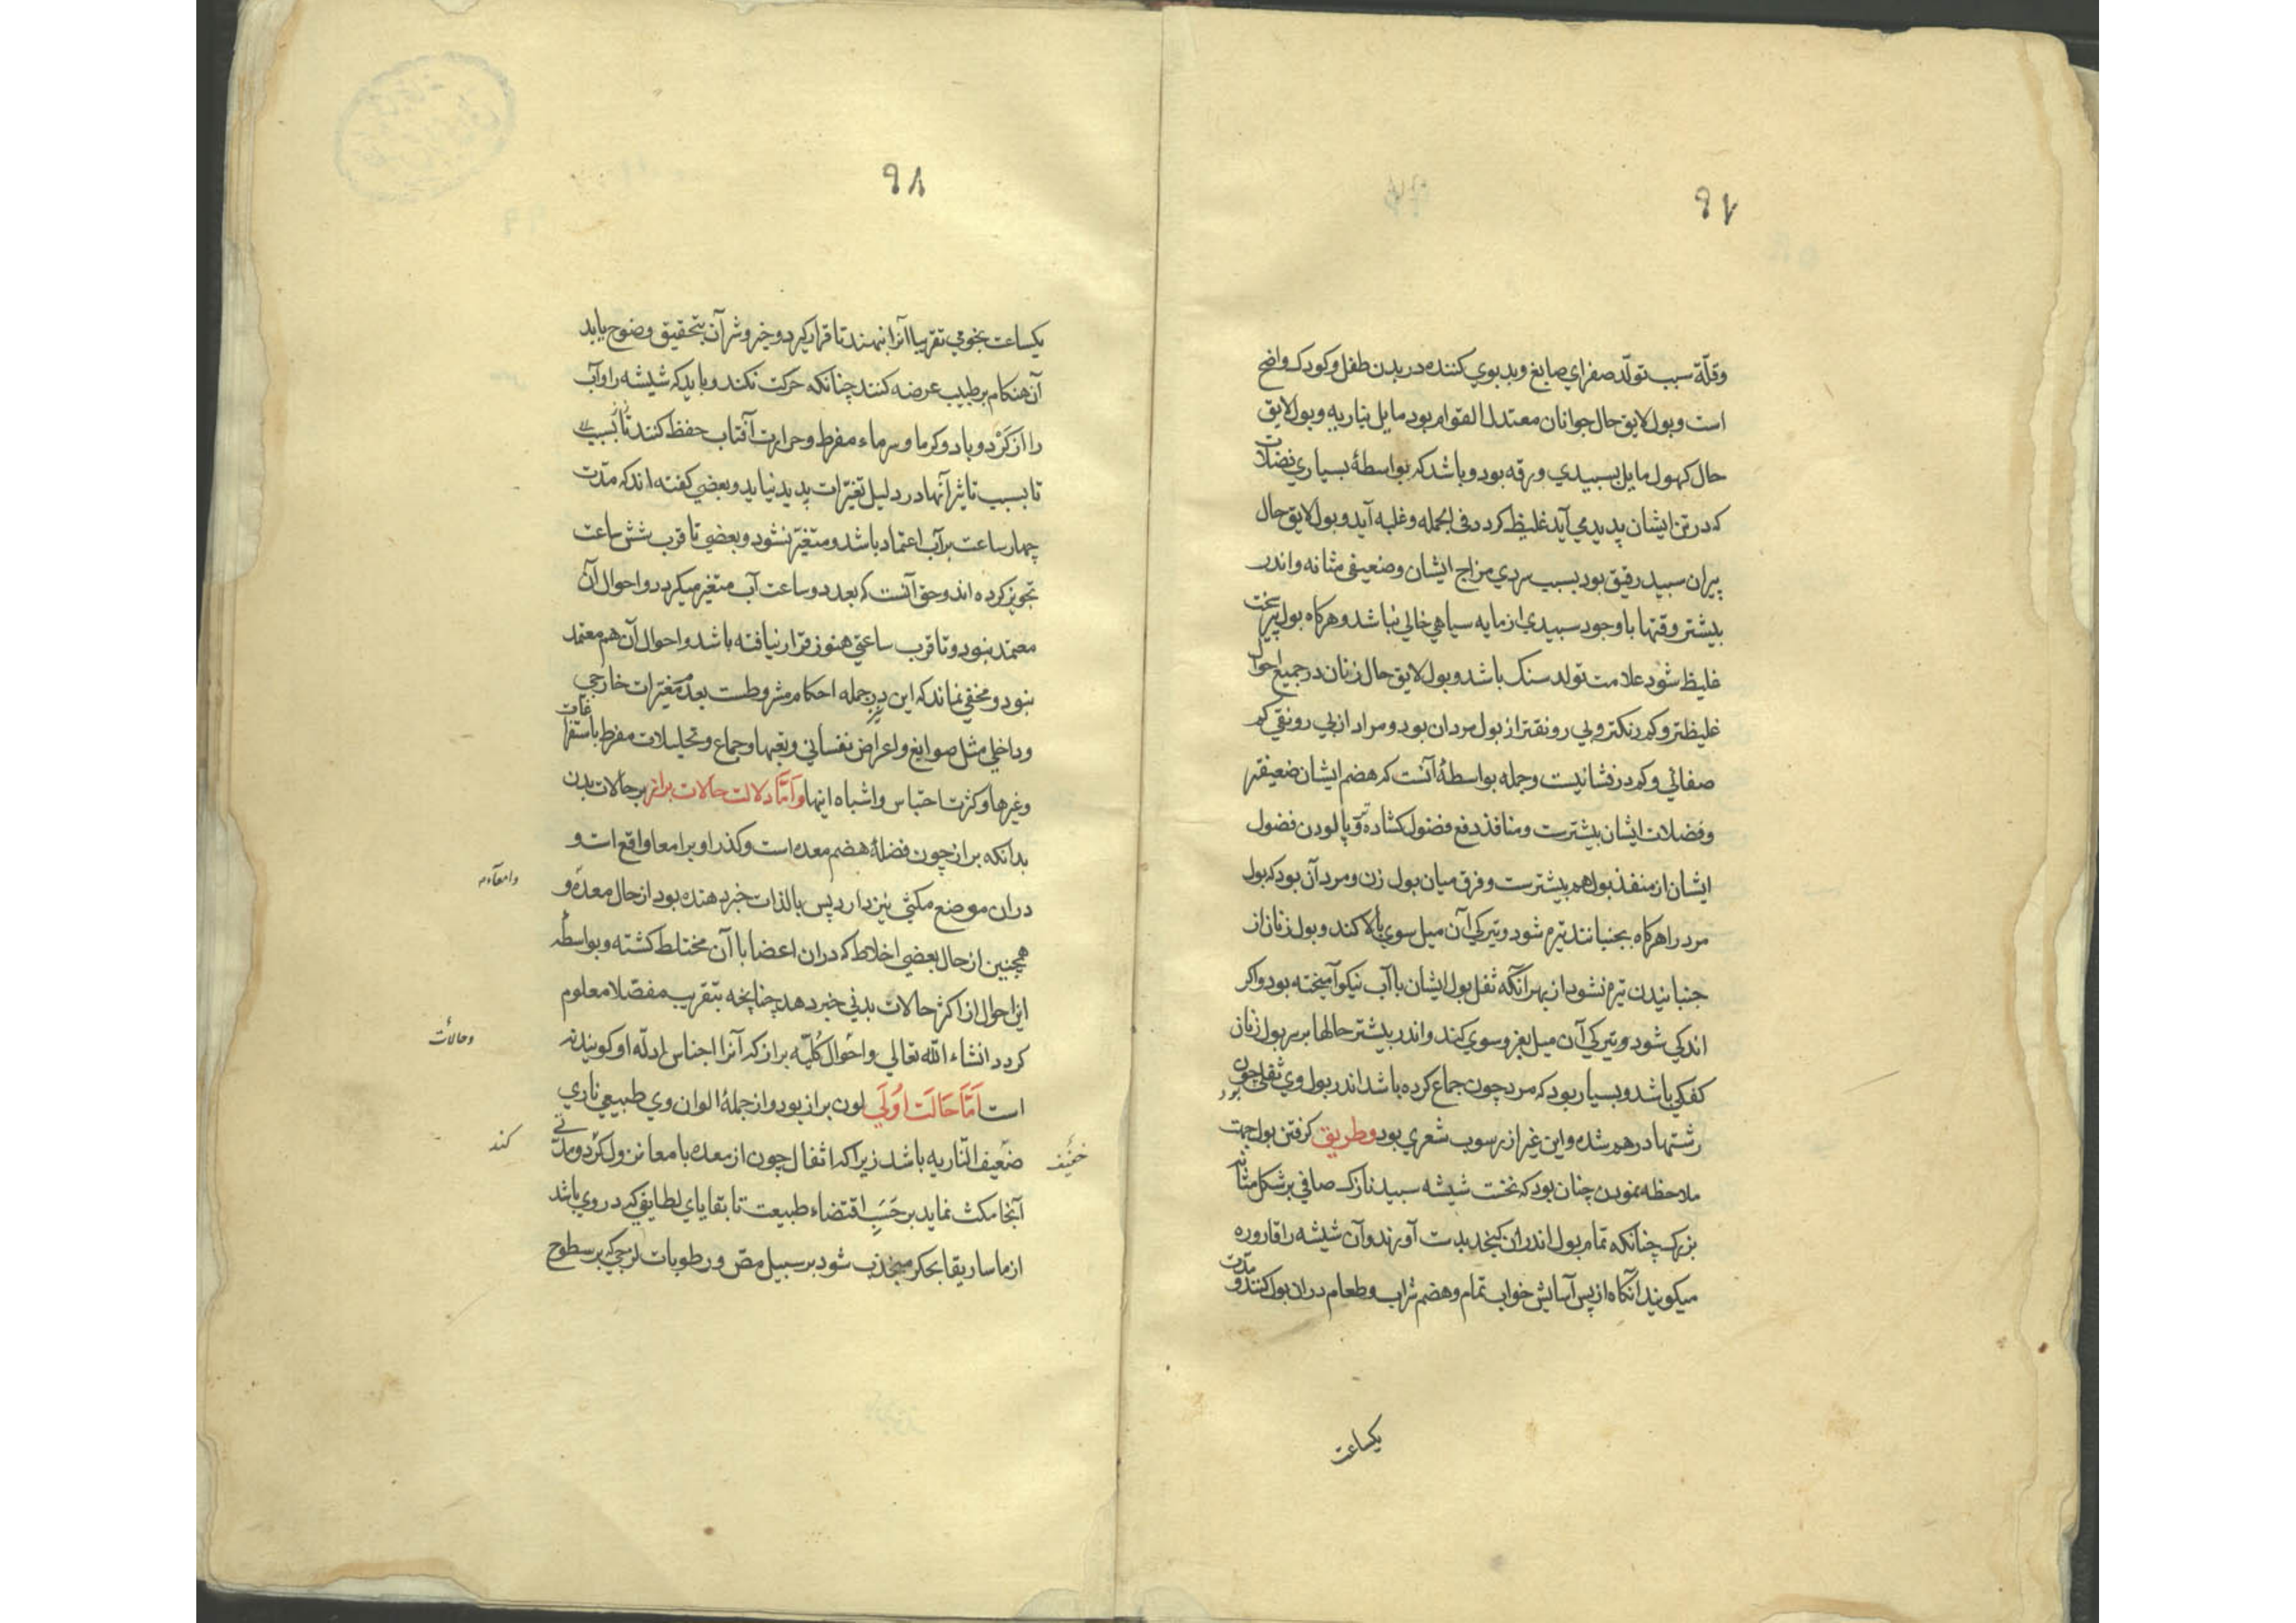 ۹۷
وقلّة سبب تولّد صفراي صابغ وبدبوي كننده در بدن طفل وكودك واضح
است وبول لايق حال جوانان معتدل القوام بود مايل بناريه وبول لايق
حال كهول مايل بسبيدي ورقه بود وباشد كه بواسطهٔ بسياري فضلات
كه در تن ايشان پديد مي آيد غليظ كردد فى الجمله وغلبه آيد وبول لايق حال
پيران سبيد رقيق بود بسبب سردي مزاج ايشان وضعيفى مثانه واندر
بيشتر وقتها با وجود سبيدي از مايه سياهي خالي نباشد وهركاه بول پير سخت
غليظ شود علامت تولد سنك باشد وبول لايق حال زنان در جميع احوال
غليظتر وكم رنكتر وبي رونقتر از بول مردان بود ومراد از بي رونقي كم
صفائي وكم درفشانيست وجمله بواسطهٔ آنست كه هضم ايشان ضعيفتر
وفضلات ايشان بيشترست ومنافذ دفع فضول كشاده‌تر وپالودن فضول
ايشان از منفذ بول هم بيشترست وفرق ميان بول زن ومرد آن بود كه بول
مرد را هركاه بجنبانند تيره شود وتيركي آن ميل سوي بالا كند وبول زنان از
جنبانيدن تيره نشود از بهر آنكه ثفل بول ايشان با آب نيكو آميخته بود واكر
اندكي شود وتيركي آن ميل بفروسوي كند واندر بيشتر حالها بر سر بول زنان
كفكي باشد وبسيار بود كه مرد چون جماع كرده باشد اندر بول وي ثفلي چون
رشتها در هم شده واين غير از رسوب شعري بود وطريق كرفتن بول جهت
ملاحظه نمودن چنان بود كه نخست شيشه سبيد نازك صافي بر شكل مثانه
بزرك چنانكه تمام بول اندران كنجد بدست آورند وآن شيشه را قاروره
ميكويند آنكاه از پس آسايش خواب تمام وهضم شراب وطعام دران بول كنند ومدّت
يكساعت
۹۸
يكساعت نجومي تقريبا آنرا بنهند تا قرار كيرد وخير وشر آن بتحقيق وضوح يابد
آن هنكام بر طبيب عرضه كنند چنانكه حركت نكند وبايد كه شيشه را وآب
را از كَرْد وباد وكرما وسرماء مفرط وحرارت آفتاب حفظ كنند تا بسبب
تا بسبب تاثير آنها در دليل تغيّرات پديد نيايد وبعضي كفته اند كه مدّت
چهار ساعت بر آب اعتماد باشد ومتغيّر نشود وبعضي تا قرب شش ساعت
تجويز كرده اند وحق آنست كه بعد دو ساعت آب متغيّر ميكردد واحوال آن
معتمد نبود وتا قرب ساعتي هنوز قرار نيافته باشد واحوال آن هم معتمد
نبود ومخفي نماند كه اين جمله احكام مشروطست بعدم مغيّرات خارجي
وداخلي مثل صوابغ واعراض نفساني وتعبها وجماع وتحليلات مفرط باستفراغات
وغيرها وكثرت احتباس واشباه اينها وَامَّا دلالت حالات براز بر حالات بدن
بدانكه براز چون فضلهٔ هضم معده است وكذر او بر امعا واقع است و
دران موضع مكثي نيز دارد پس بالذات خبر دهنده بود از حال معده و
همچنين از حال بعضي اخلاط كه دران اعضا با آن مختلط كشته وبواسطه
اين احوال از اكثر حالات بدني خبر دهد چنانچه بتقريب مفصّلا معلوم
كردد انشاء الله تعالي واحوال كُليّه براز كه آنرا اجناس ادلّه او كويند نه
است اَمَّا حَالَت اوُلَي لون براز بود واز جملهٔ الوان وي طبيعي ناري
ضعيف النّاريه باشد زيرا كه اثفال چون از معده بامعا نزول كرد ومدّتي
آنجا مكث نمايد بر حَسَبِ اقتضاء طبيعت تا بقاياي لطايفي كه در وي باشد
از ماساريقا بجكر منجذب شود بر سبيل مصّ ورطوبات لزجي كه بر سطوح
وامعآء
وحالات
كند
خفيف